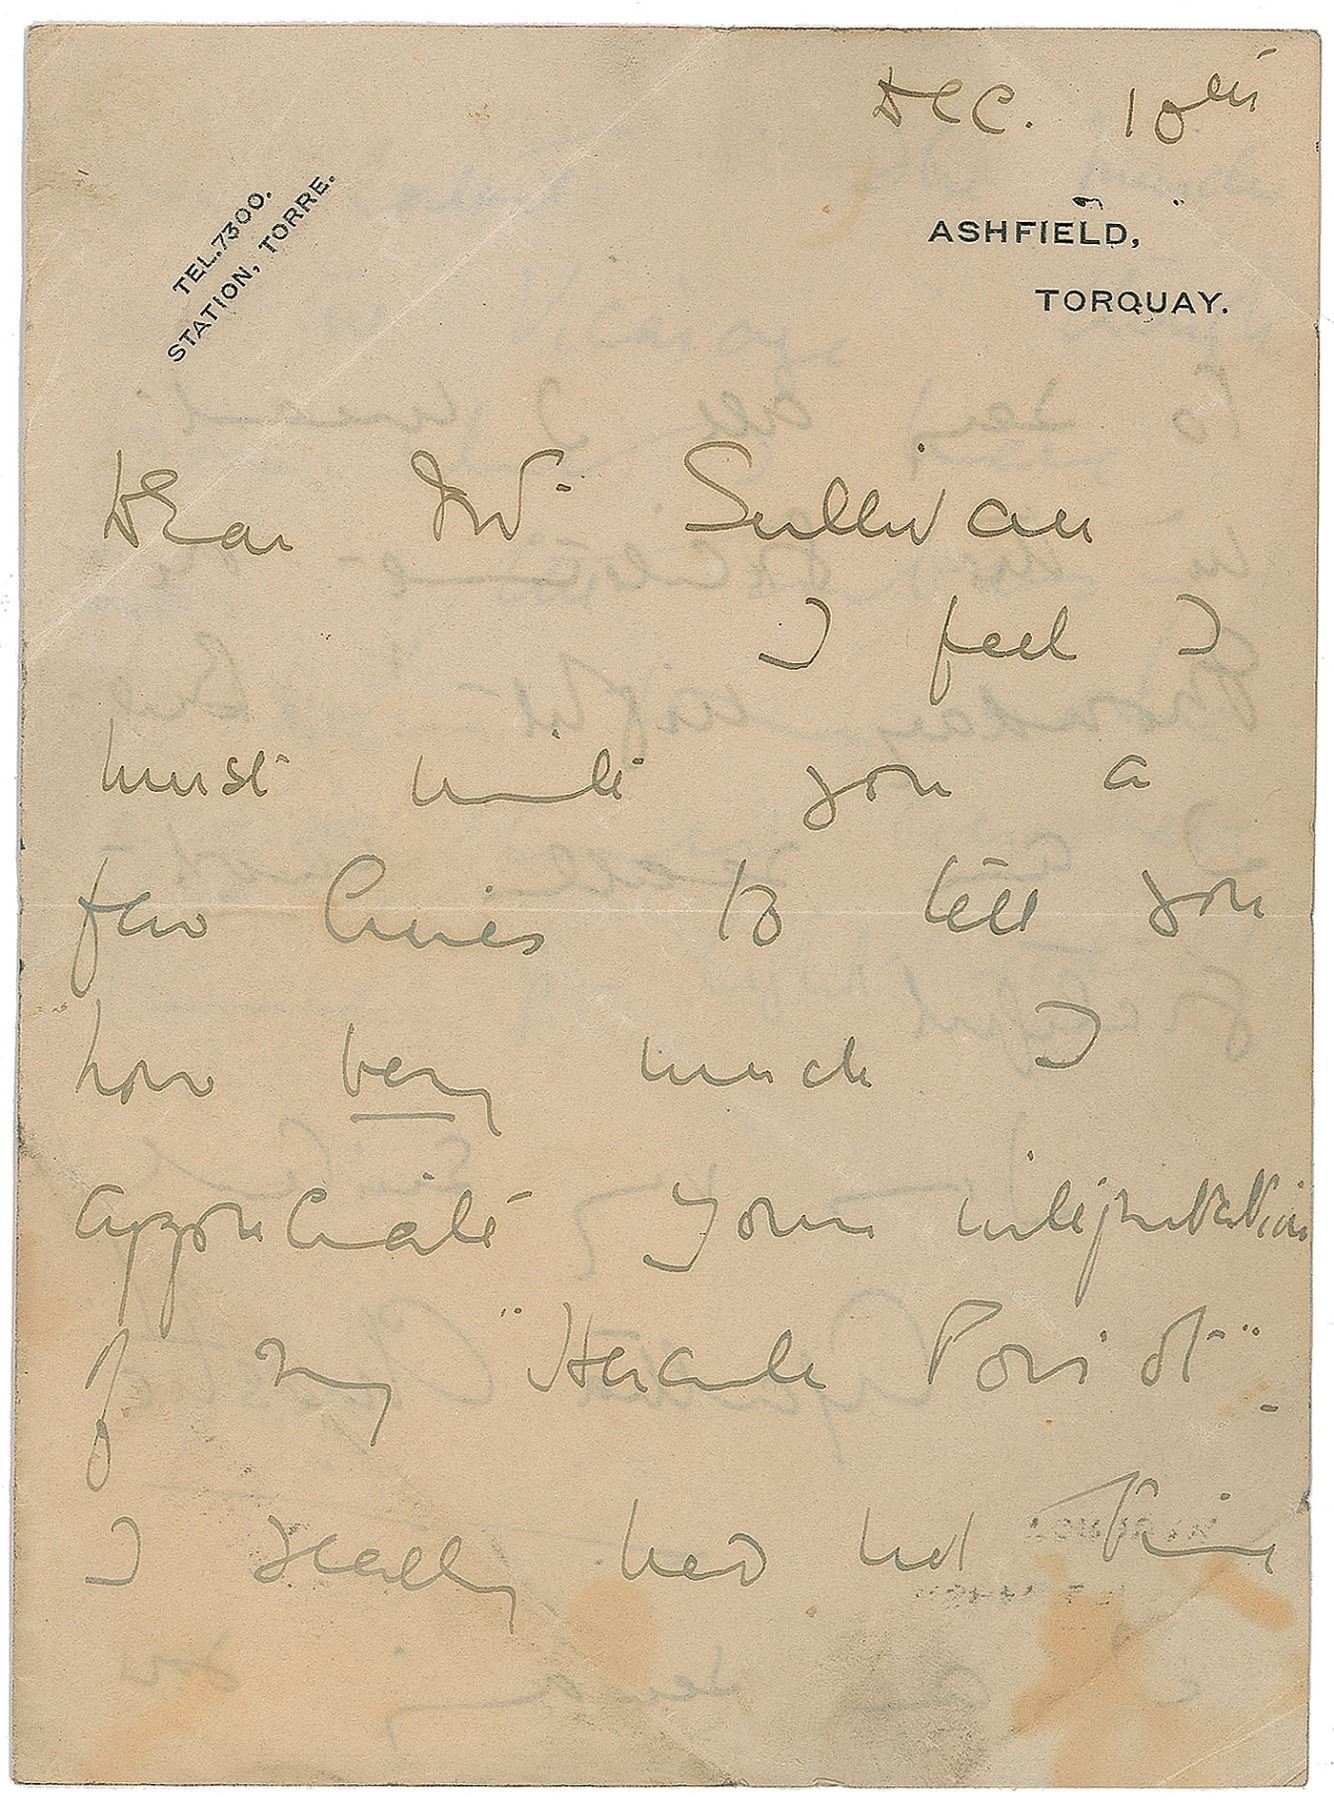 Dec. 10th
TEL. 7300.
STATION, TORRE.
ASHFIELD,
TORQUAY.
Dear Mr. Sullivan
I feel I
must write you a
few lines to tell you
how very much I
appreciate your interpretation
of my "Hercule Poirot" -
I really had not time